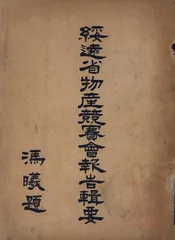 綏遠省物產競賽會報告輯要
馮曦題